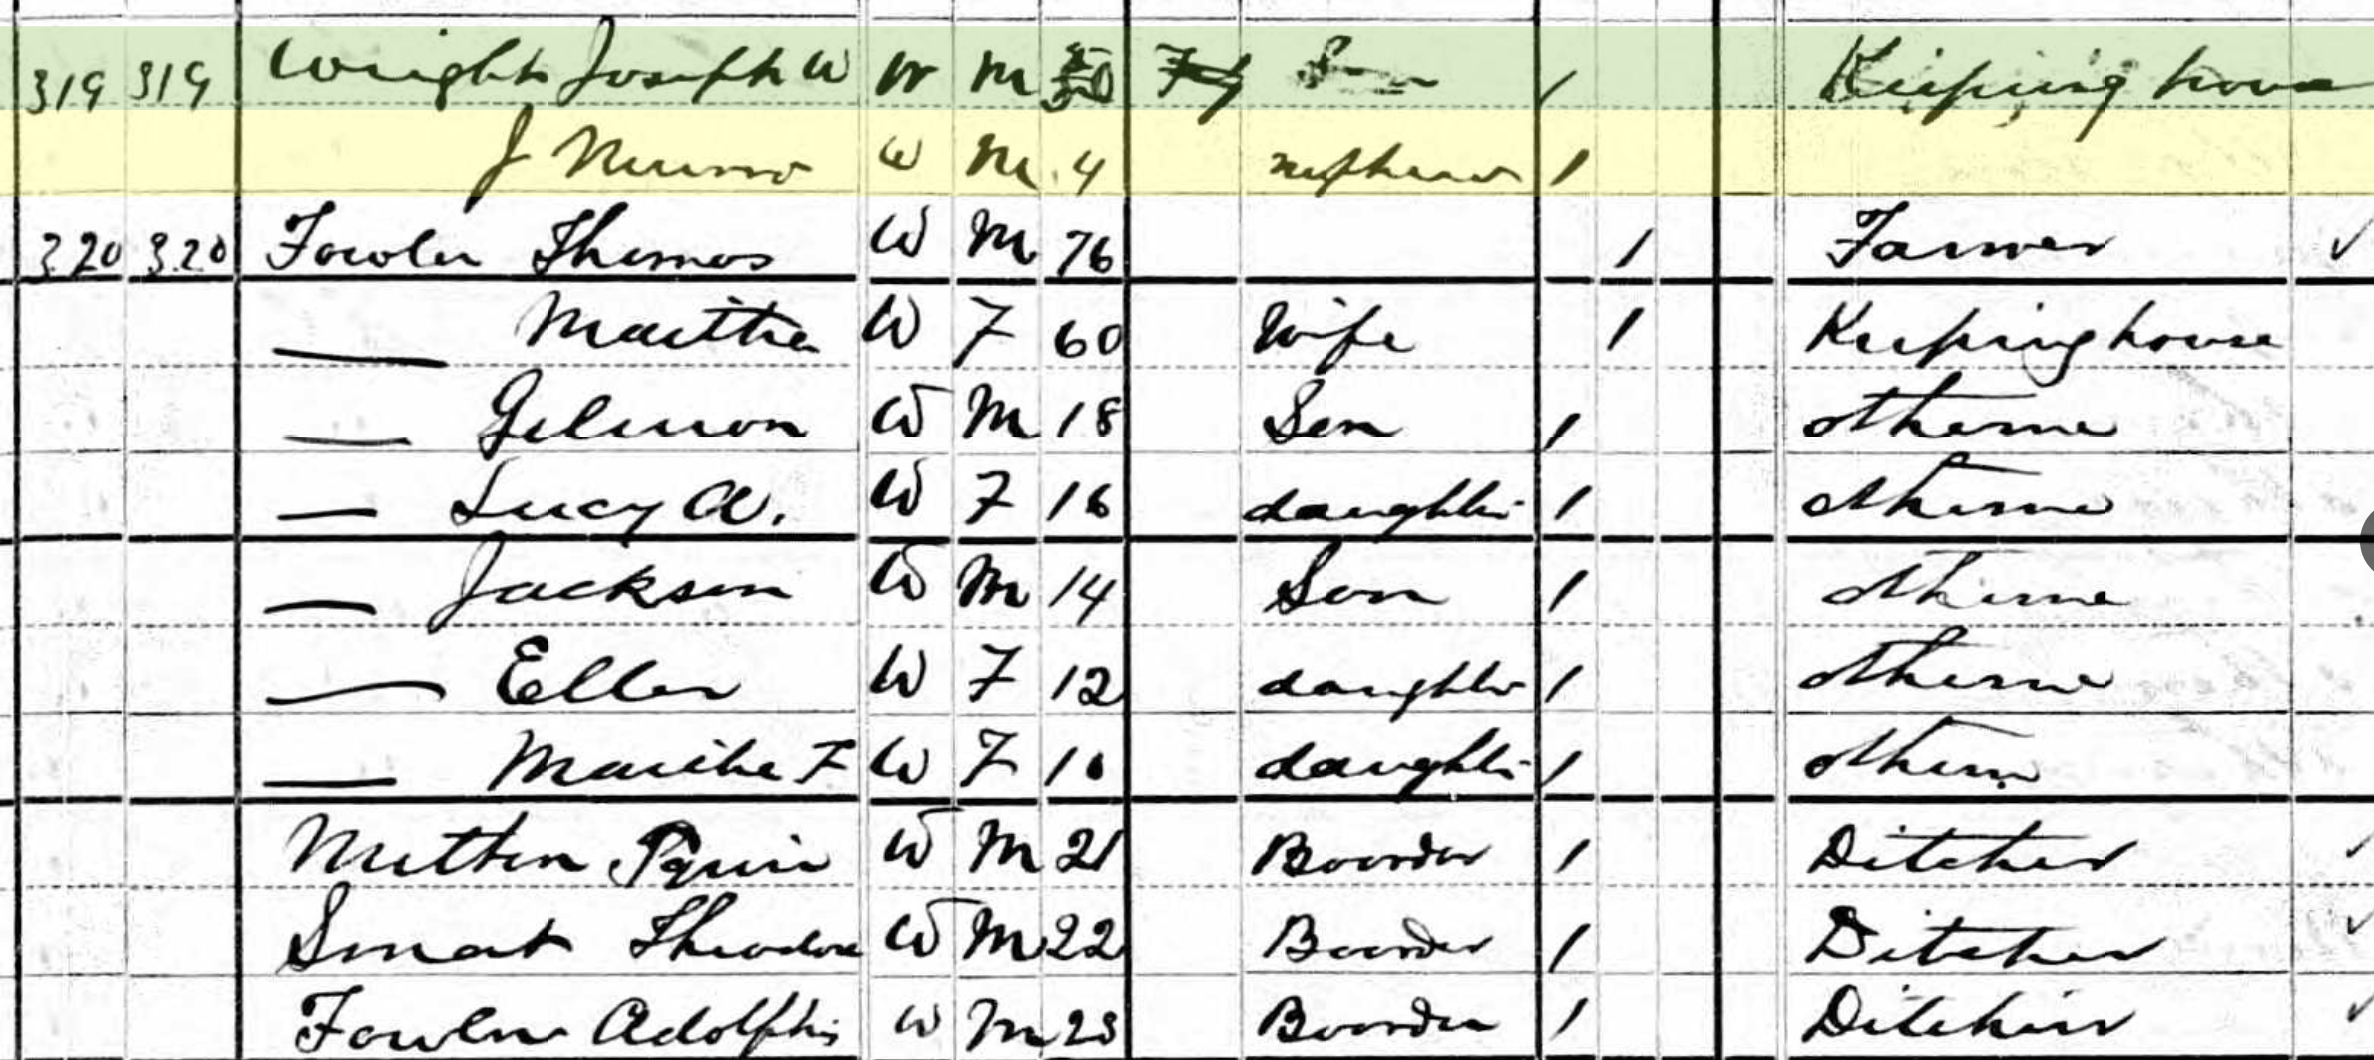 319 319 Wright Joseph W W M 50 Son / Keeping house
J Munro W M 4 nephew /
320 320 Fowler Thomas W M 76 / Farmer ✓
— Martha W F 60 Wife / Keeping house
— Gilmon W M 18 Son / At home
— Lucy A. W F 16 daughter / At home
— Jackson W M 14 Son / At home
— Ellen W F 12 daughter / At home
— F W F 10 daughter / At home
W M 21 Boarder / Ditcher ✓
Smart Theodore W M 22 Boarder / Ditcher ✓
Fowler Adolphus W M 23 Boarder / Ditcher ✓